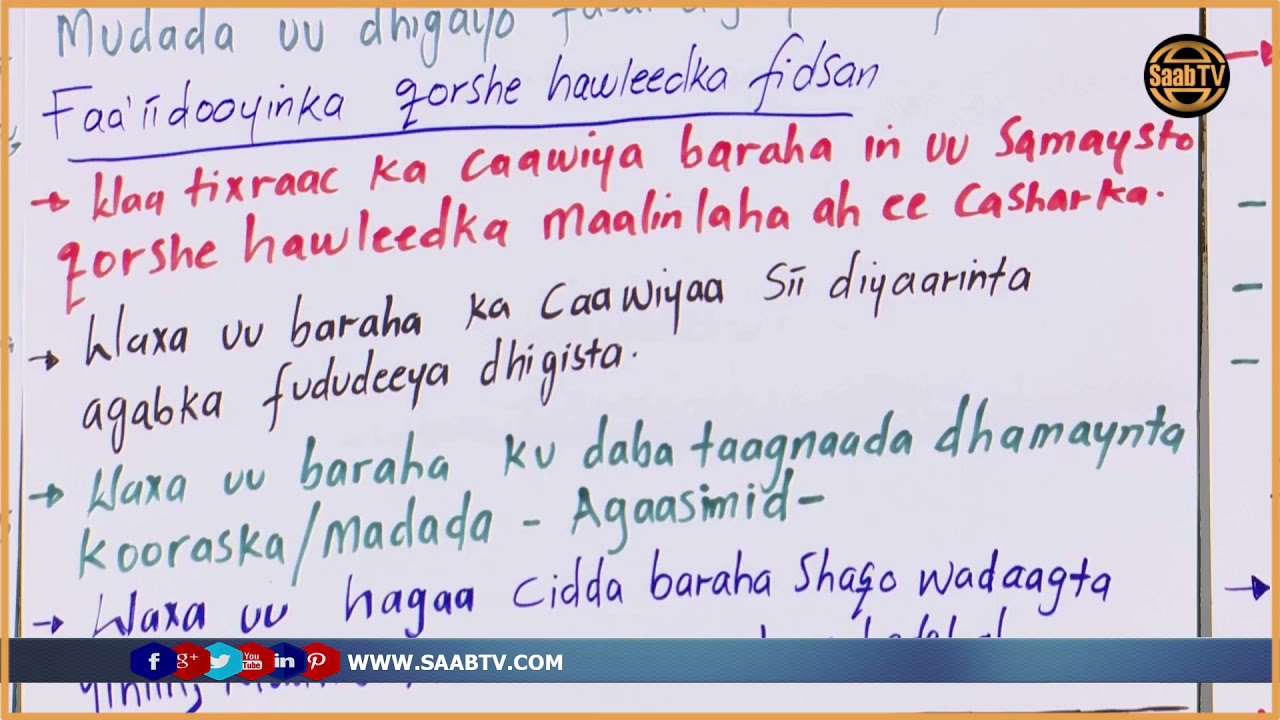 Mudada uu dhigayo
Faa'iidooyinka qorshe hawleedka fidsan
SaabTV
→ Waa tixraac ka caawiya baraha in uu Samaysto
qorshe hawleedka maalinlaha ah ee Casharka.
→ Waxa uu baraha ka Caawiyaa Sii diyaarinta
agabka fududeeya dhigista.
→ Waxa uu baraha ku daba taagnaada dhamaynta
kooraska/Madada - Agaasimid-
→ Waxa uu hagaa Cidda baraha Shaqo wadaagta
f g+ You Tube in
WWW.SAABTV.COM